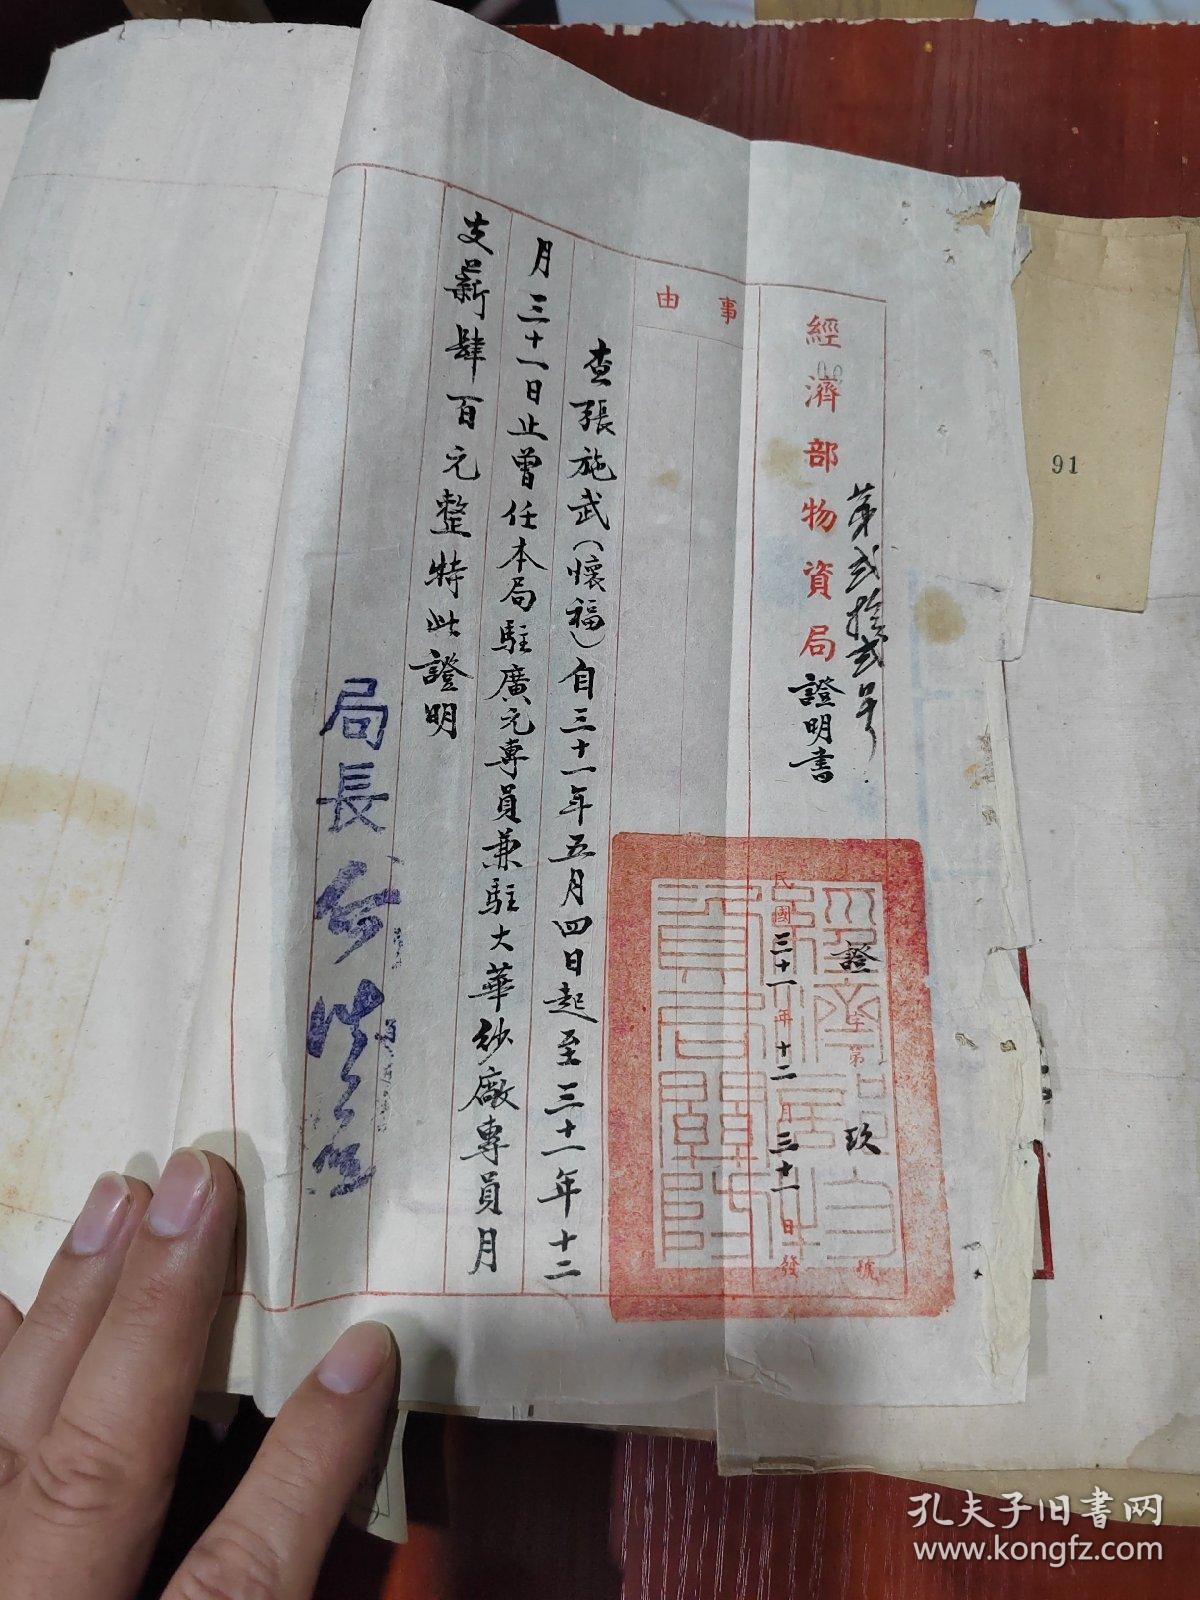 第貳拾貳号
經濟部物資局證明書
證字第玖號
民國三十一年十二月三十一日發
事由
查張施武(懷福)自三十一年五月四日起至三十一年十二
月三十一日止曾任本局駐廣元專員兼駐大華紗廠專員月
支薪肆百元整特此證明
局長
91
孔夫子旧书网
www.kongfz.com